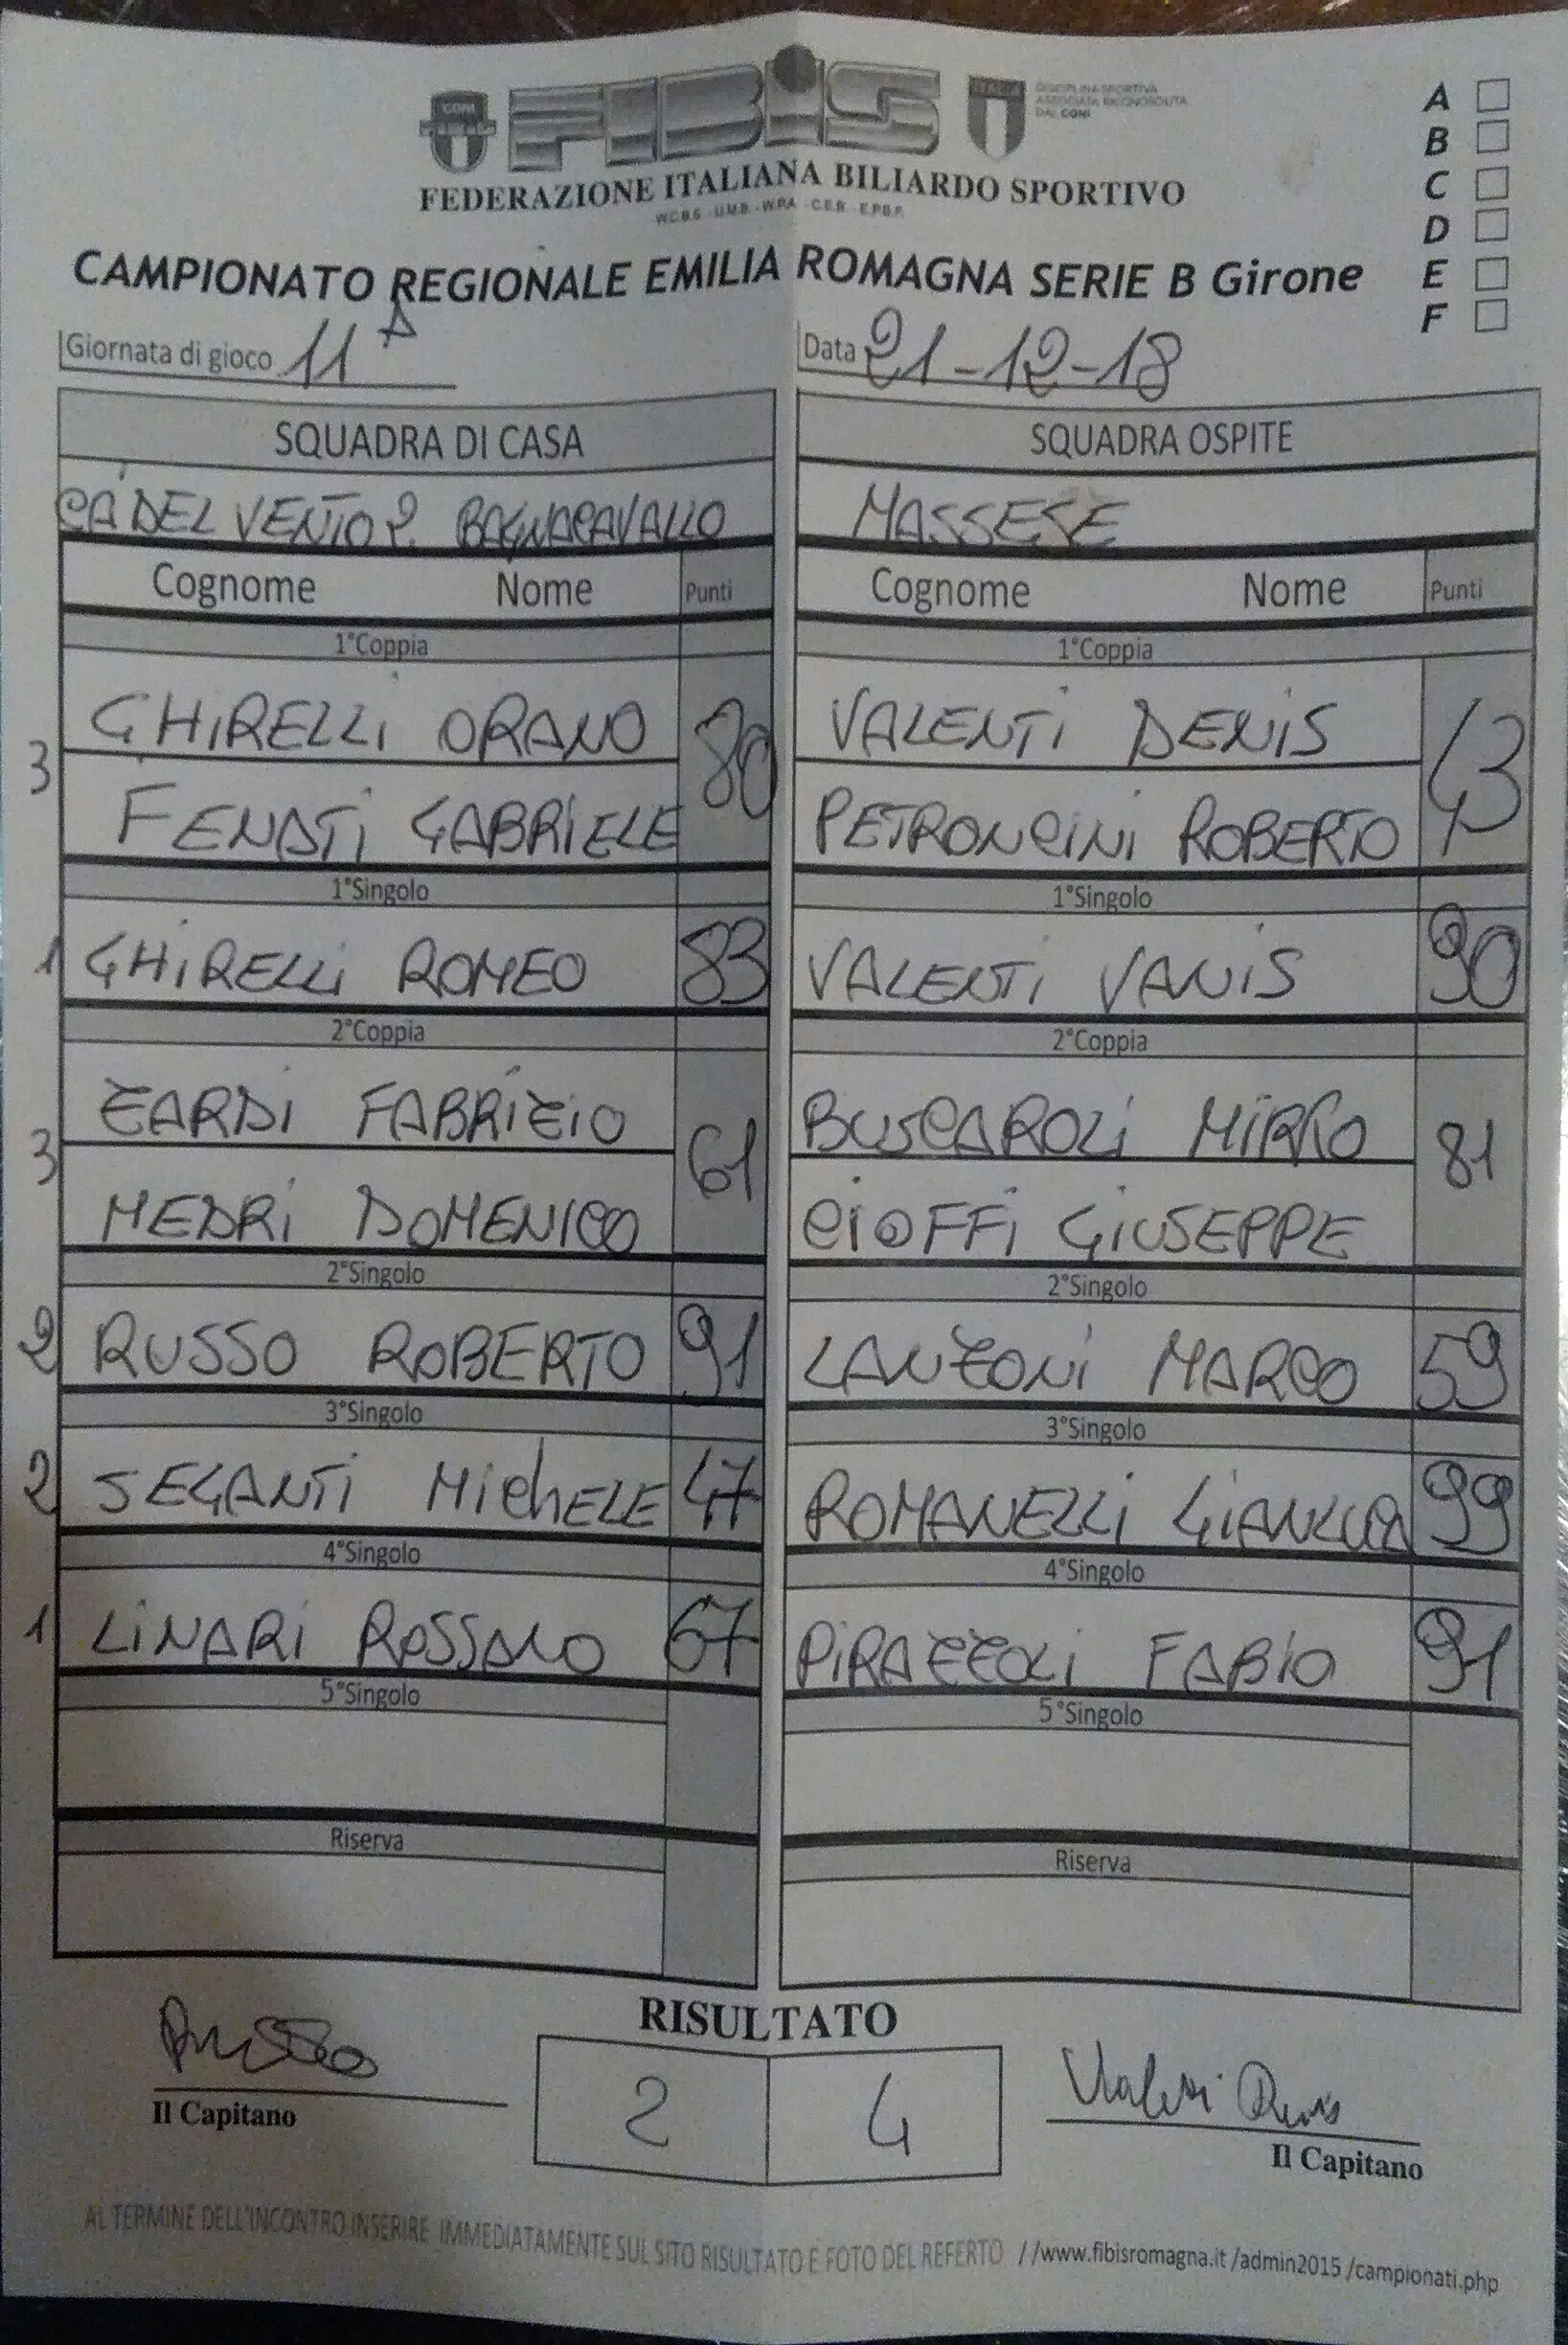 CONI FIBIS ITALIA DISCIPLINA SPORTIVA
ASSOCIATA RICONOSCIUTA
DAL CONI
FEDERAZIONE ITALIANA BILIARDO SPORTIVO
W.C.B.S. - U.M.B. - W.P.A. - C.E.B. - E.P.B.F.
A
B
C
D
E
F
CAMPIONATO REGIONALE EMILIA ROMAGNA SERIE B Girone
Giornata di gioco 11ᴬ Data 21-12-18
SQUADRA DI CASA SQUADRA OSPITE
CÀ DEL VENTO 2 BAGNACAVALLO MASSESE
Cognome Nome Punti Cognome Nome Punti
1°Coppia 1°Coppia
GHIRELLI ORANO VALENTI DENIS
3 80 43
FENATI GABRIELE PETRONCINI ROBERTO
1°Singolo 1°Singolo
1 GHIRELLI ROMEO 83 VALENTI VANIS 90
2°Coppia 2°Coppia
ZARDI FABRIZIO BUSCAROLI MIRKO
3 61 81
MEDRI DOMENICO CIOFFI GIUSEPPE
2°Singolo 2°Singolo
2 RUSSO ROBERTO 91 LANZONI MARCO 59
3°Singolo 3°Singolo
2 SEGANTI MichELE 47 ROMANELLI GIANLUCA 99
4°Singolo 4°Singolo
1 LINARI ROSSANO 67 PIRAZZOLI FABIO 91
5°Singolo 5°Singolo
Riserva Riserva
RISULTATO
Russo 2 4 Valenti Denis
Il Capitano Il Capitano
AL TERMINE DELL'INCONTRO INSERIRE IMMEDIATAMENTE SUL SITO RISULTATO E FOTO DEL REFERTO //www.fibisromagna.it /admin2015 /campionati.php